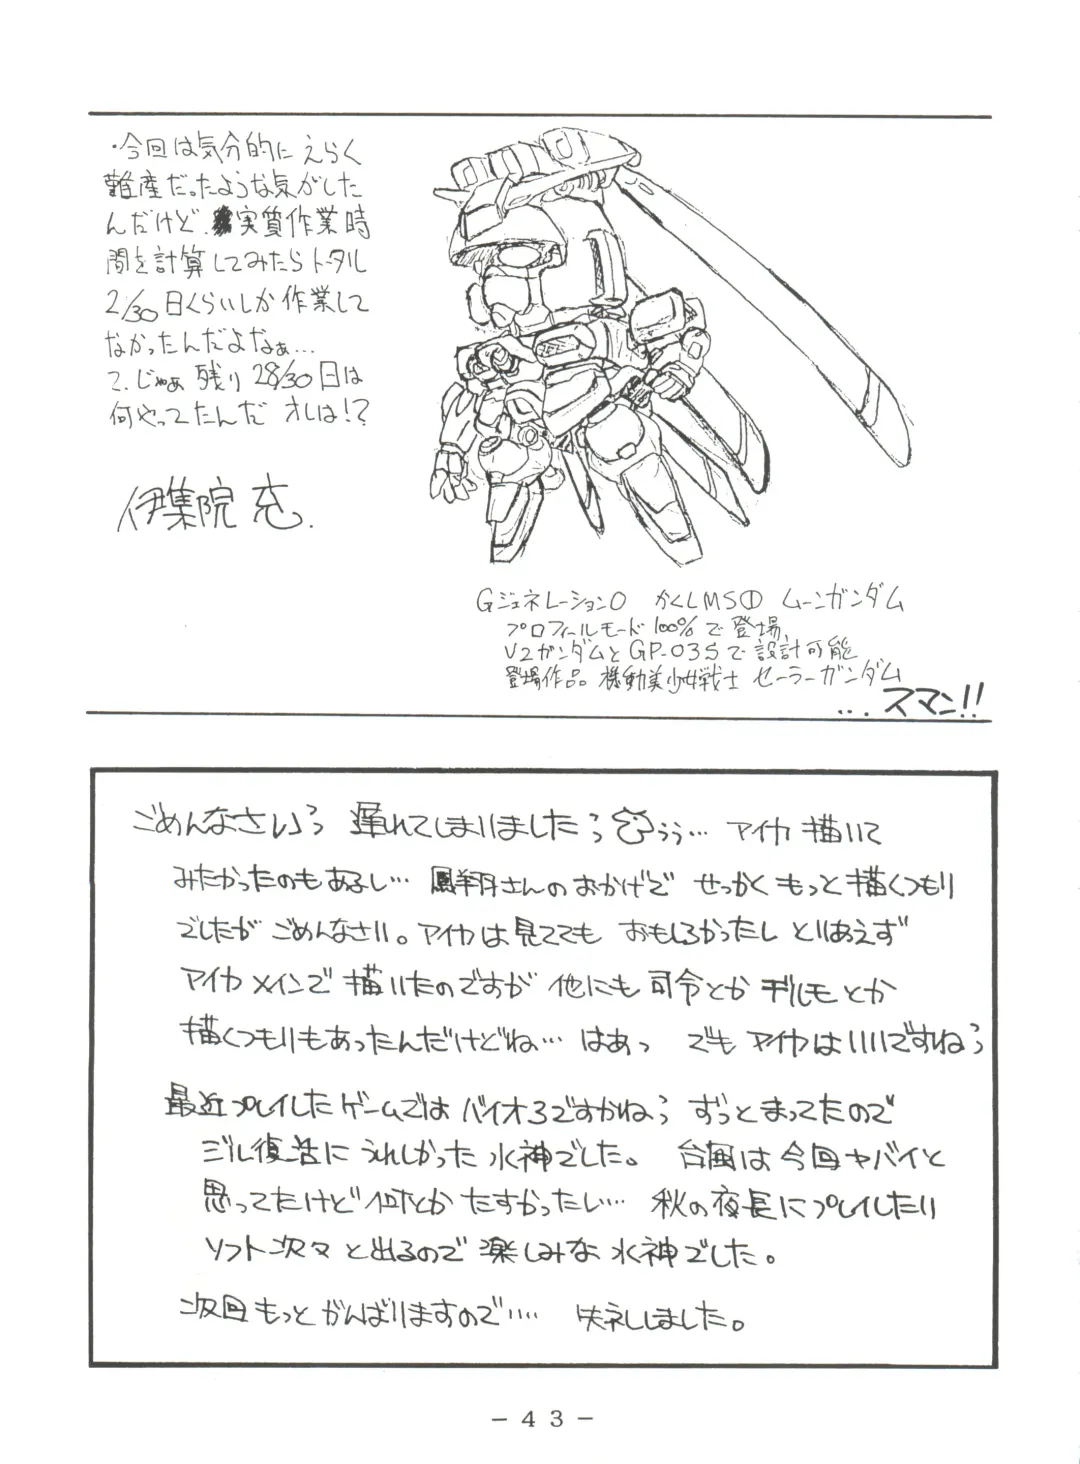 ・今回は気分的にえらく
難産だったような気がした
んだけど、実質作業時
間を計算してみたらトータル
2/30日くらいしか作業して
なかったんだよなぁ…
て、じゃぁ残り28/30日は
何やってたんだ オレは!?
伊集院 充.
Gジェネレーション0 かくしMS① ムーンガンダム
プロフィールモード100%で登場、
V2ガンダムとGP-03Sで設計可能
登場作品。機動美少女戦士 セーラーガンダム
...スマン!!
ごめんなさいぃっ 遅れてしまいましたぅ ぅぅ… アイカ描いて
みたかったのもあるし… 鳳翔さんのおかげで せっかくもっと描くつもり
でしたが ごめんなさい。アイカは見てても おもしろかったし とりあえず
アイカメインで描いたのですが 他にも司令とか デルモとか
描くつもりもあったんだけどね… はあっ でも アイカはいいですねぅ
最近プレイしたゲームでは バイオ3ですかねぅ ずっとまってたので
ジル復活に うれしかった 水神でした。 台風は今回ヤバイと
思ってたけど 何とか たすかったし… 秋の夜長にプレイしたり
ソフト次々と出るので 楽しみな 水神でした。
次回もっと がんばりますので…‥ 失礼しました。
- 43 -